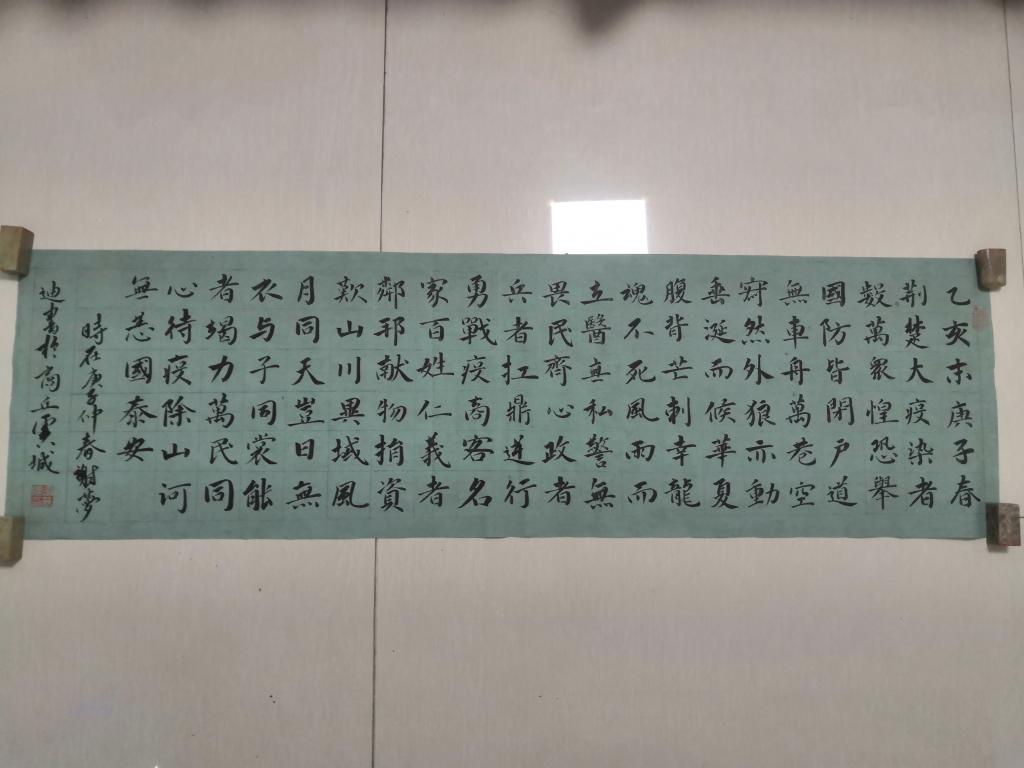 乙亥末庚子春
荆楚大疫染者
数萬眾惶恐舉
國防皆閉户道
無車舟萬巷空
寂然外狼亦動
垂涎而候華夏
腹背芒刺幸龍
魂不死風雨而
立醫無私警無
畏民齊心政者
兵者扛鼎逆行
勇戰疫商客名
家百姓仁義者
鄰邦献物捐資
歎山川異域風
月同天豈曰無
衣与子同裳能
者竭力萬民同
心待疫除山河
無恙國泰安
時在庚子仲春謝夢
迪書於商丘虞城